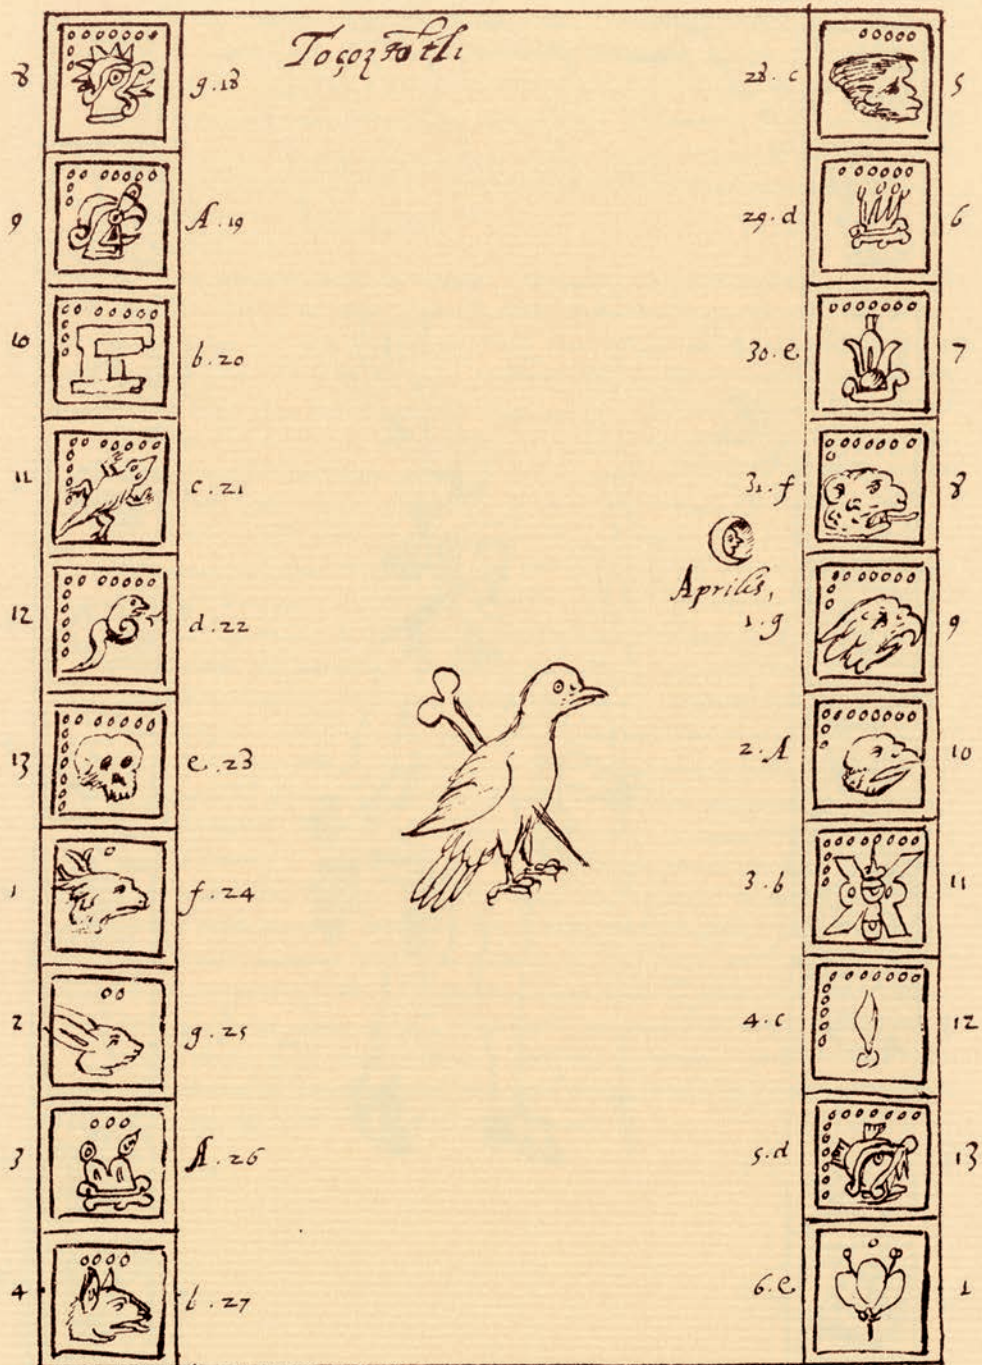 Toçoztotli
8 g.18
9 A.19
10 b.20
11 c.21
12 d.22
13 e.23
1 f.24
2 g.25
3 A.26
4 b.27
28.c 5
29.d 6
30.e 7
31.f 8
Aprilis,
1.g 9
2.A 10
3.b 11
4.c 12
5.d 13
6.e 1